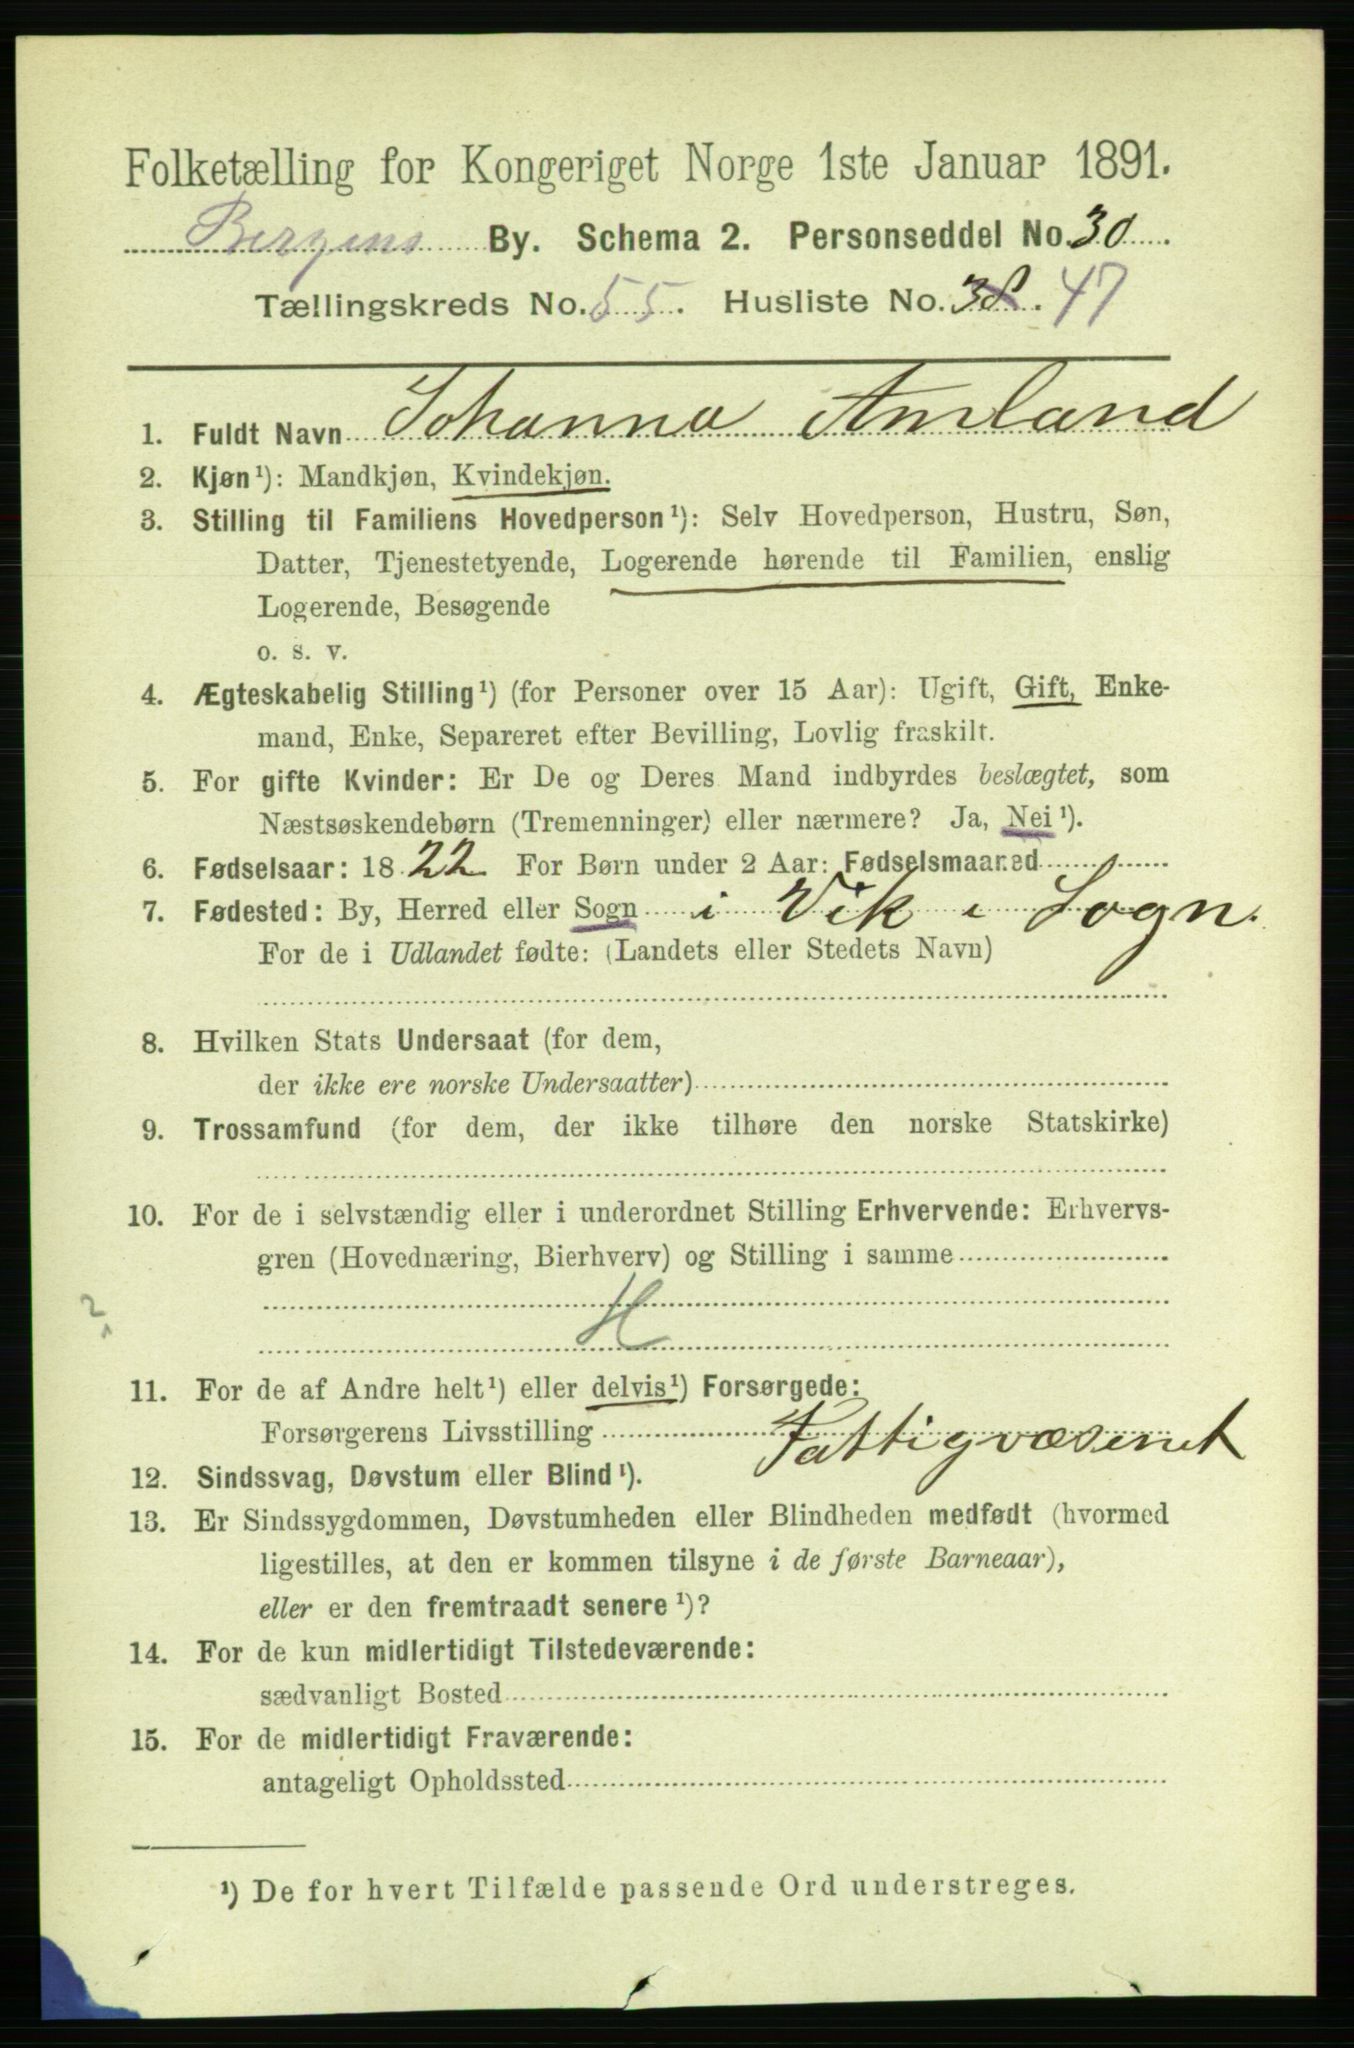 Folketælling for Kongeriget Norge 1ste Januar 1891.
Bergens By. Schema 2. Personseddel No. 30
Tællingskreds No. 55. Husliste No. 38. 47
1. Fuldt Navn Johanna Amland
2. Kjøn¹): Mandkjøn, Kvindekjøn.
3. Stilling til Familiens Hovedperson¹): Selv Hovedperson, Hustru, Søn,
Datter, Tjenestetyende, Logerende hørende til Familien, enslig
Logerende, Besøgende
o. s. v.
4. Ægteskabelig Stilling¹) (for Personer over 15 Aar): Ugift, Gift, Enke-
mand, Enke, Separeret efter Bevilling, Lovlig fraskilt.
5. For gifte Kvinder: Er De og Deres Mand indbyrdes beslægtet, som
Næstsøskendebørn (Tremenninger) eller nærmere? Ja, Nei¹).
6. Fødselsaar: 1822 For Børn under 2 Aar: Fødselsmaaned
7. Fødested: By, Herred eller Sogn i Vik i Sogn.
For de i Udlandet fødte: (Landets eller Stedets Navn)
8. Hvilken Stats Undersaat (for dem,
der ikke ere norske Undersaatter)
9. Trossamfund (for dem, der ikke tilhøre den norske Statskirke)
10. For de i selvstændig eller i underordnet Stilling Erhvervende: Erhvervs-
gren (Hovednæring, Bierhverv) og Stilling i samme
H
2
11. For de af Andre helt¹) eller delvis¹) Forsørgede:
Forsørgerens Livsstilling Fattigvæsenet
12. Sindssvag, Døvstum eller Blind¹).
13. Er Sindssygdommen, Døvstumheden eller Blindheden medfødt (hvormed
ligestilles, at den er kommen tilsyne i de første Barneaar),
eller er den fremtraadt senere¹)?
14. For de kun midlertidigt Tilstedeværende:
sædvanligt Bosted
15. For de midlertidigt Fraværende:
antageligt Opholdssted
¹) De for hvert Tilfælde passende Ord understreges.